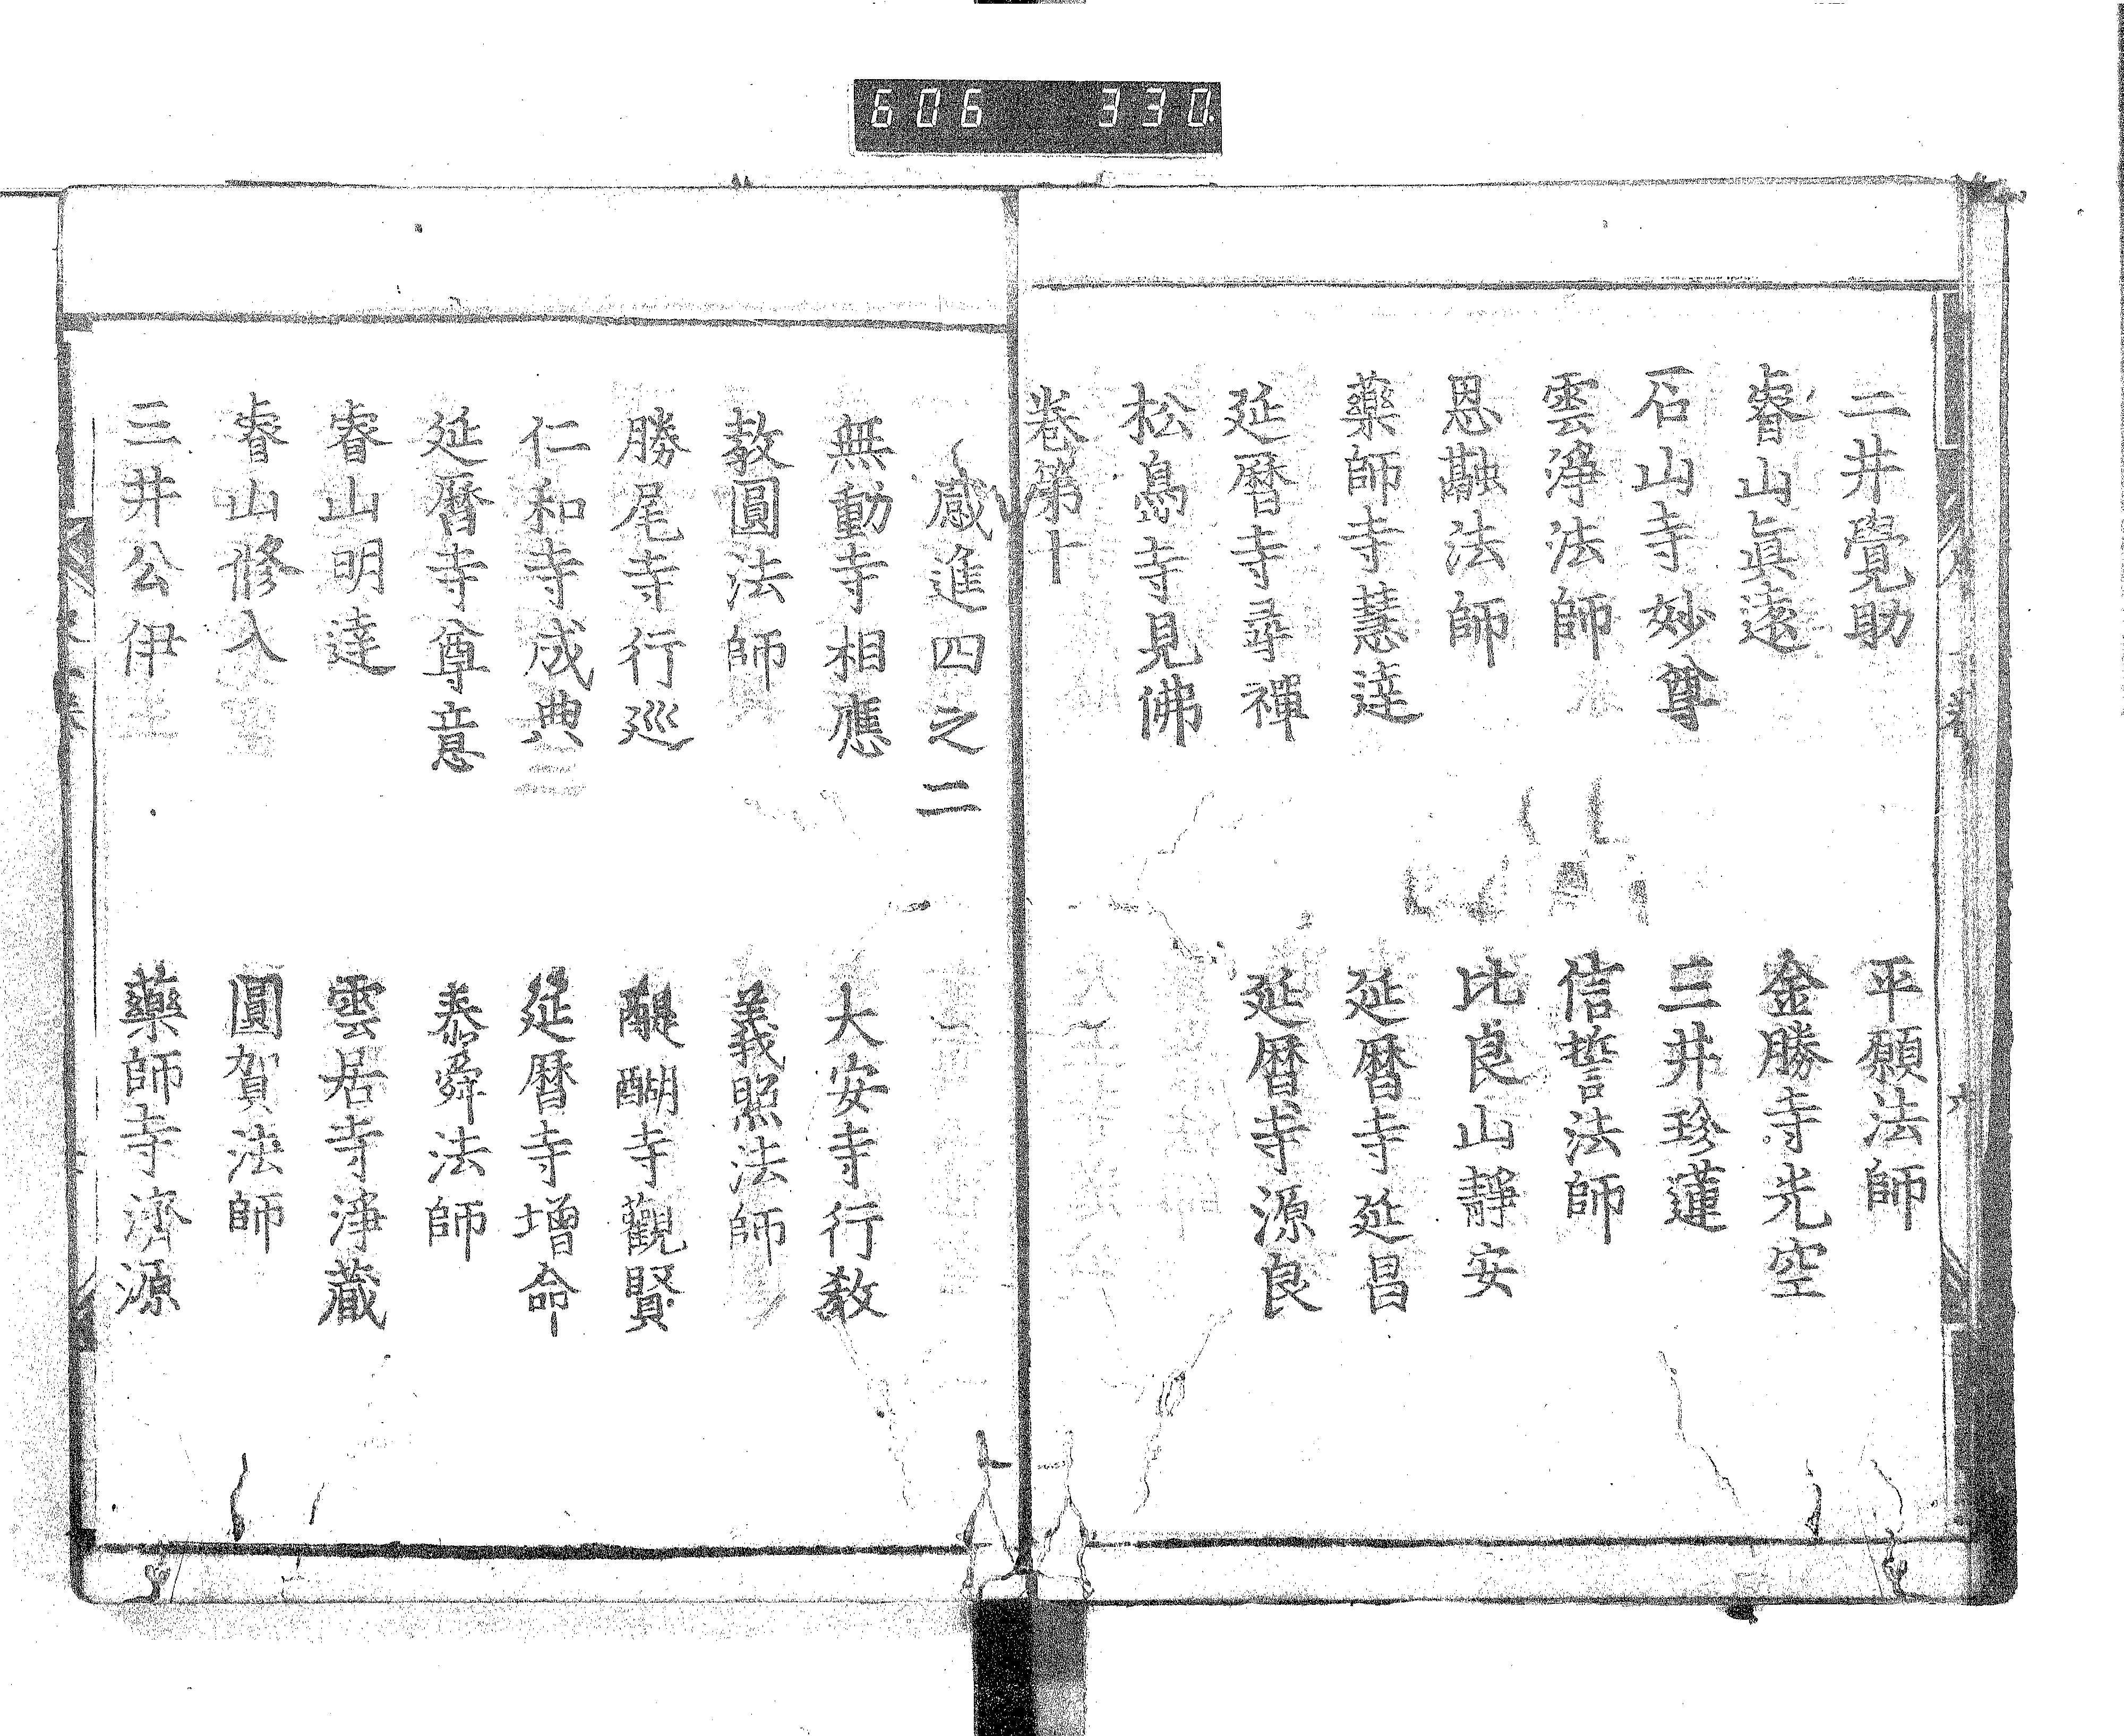 606 330.
二井覺助 平願法師
睿山眞遠 金勝寺光空
石山寺妙尊 三井珍蓮
雲淨法師 信誓法師
恩融法師 比良山靜安
藥師寺慧達 延曆寺延昌
延曆寺尋禪 延曆寺源良
松島寺見佛
卷第十
感進四之二
無動寺相應 大安寺行教
教圓法師 義照法師
勝尾寺行巡 醍醐寺觀賢
仁和寺成典 延曆寺增命
延曆寺尊意 泰舜法師
睿山明達 雲居寺淨藏
睿山修入 圓賀法師
三井公伊 藥師寺濟源